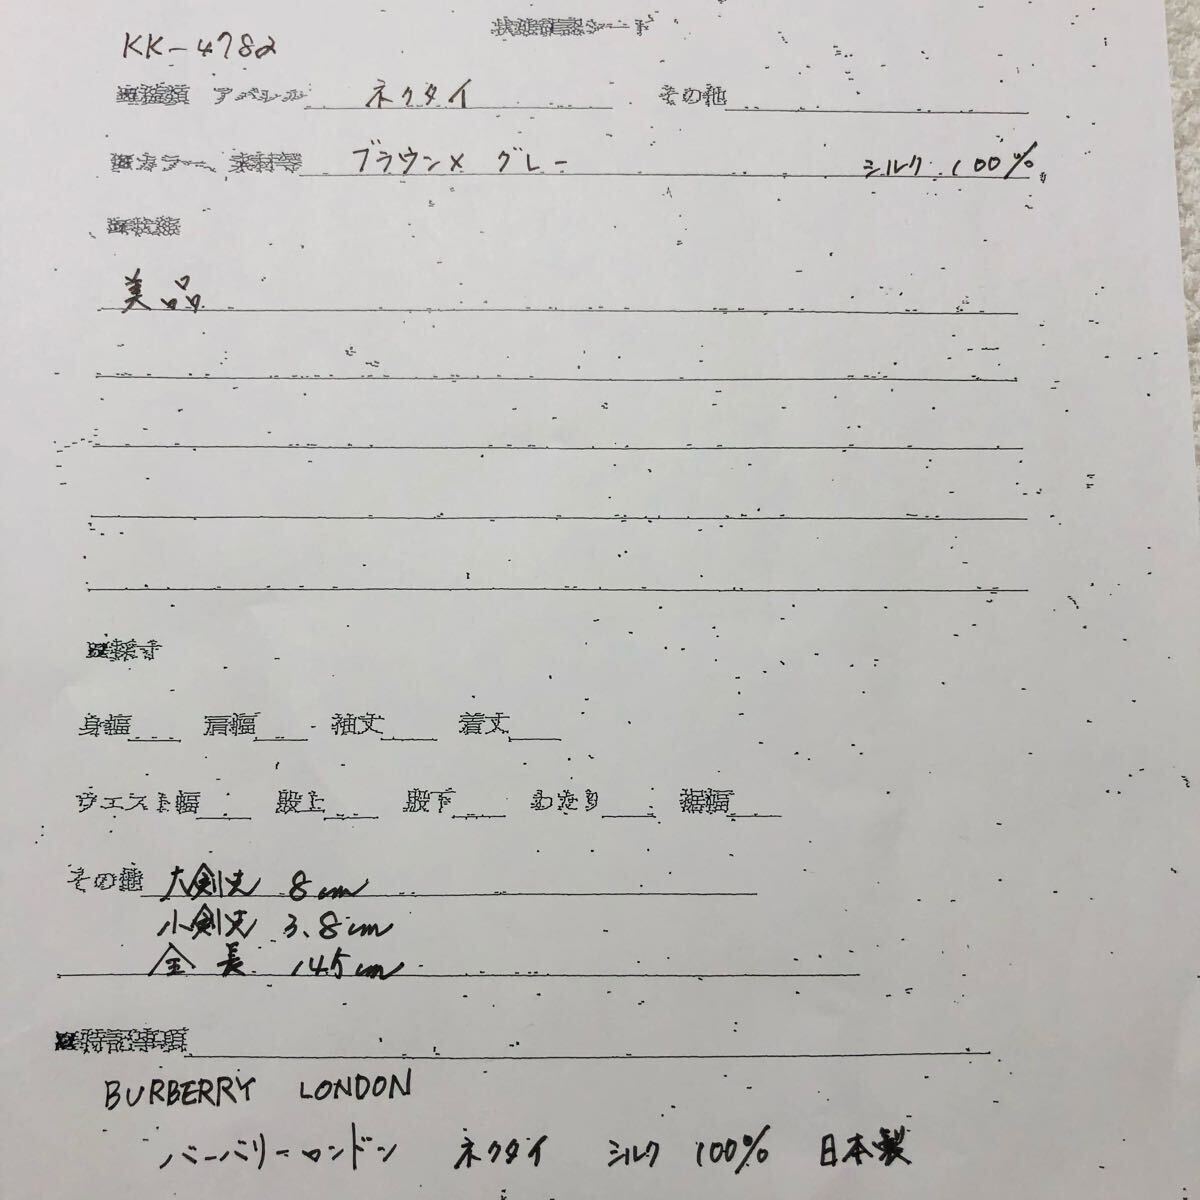 状態確認シート
KK-4782
■種類 アパレル ネクタイ その他
■カラー、素材等 ブラウン× グレー シルク 100%
■状態
美品
■採寸
身幅 肩幅 袖丈 着丈
ウエスト幅 股上 股下 わたり 裾幅
その他 大剣先 8cm
小剣先 3.8cm
全長 145cm
■特記事項
BURBERRY LONDON
バーバリーロンドン ネクタイ シルク 100% 日本製